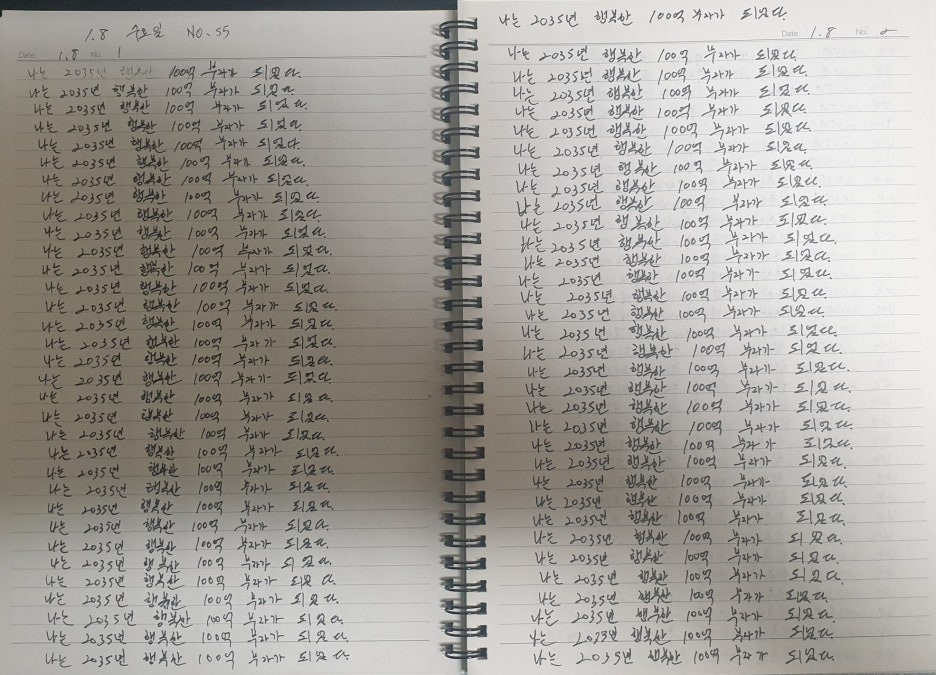 1.8 수요일 NO.55
Date. 1.8 No. 1
나는 2035년 행복한 100억 부자가 되었다.
나는 2035년 행복한 100억 부자가 되었다.
나는 2035년 행복한 100억 부자가 되었다.
나는 2035년 행복한 100억 부자가 되었다.
나는 2035년 행복한 100억 부자가 되었다.
나는 2035년 행복한 100억 부자가 되었다.
나는 2035년 행복한 100억 부자가 되었다.
나는 2035년 행복한 100억 부자가 되었다.
나는 2035년 행복한 100억 부자가 되었다.
나는 2035년 행복한 100억 부자가 되었다.
나는 2035년 행복한 100억 부자가 되었다.
나는 2035년 행복한 100억 부자가 되었다.
나는 2035년 행복한 100억 부자가 되었다.
나는 2035년 행복한 100억 부자가 되었다.
나는 2035년 행복한 100억 부자가 되었다.
나는 2035년 행복한 100억 부자가 되었다.
나는 2035년 행복한 100억 부자가 되었다.
나는 2035년 행복한 100억 부자가 되었다.
나는 2035년 행복한 100억 부자가 되었다.
나는 2035년 행복한 100억 부자가 되었다.
나는 2035년 행복한 100억 부자가 되었다.
나는 2035년 행복한 100억 부자가 되었다.
나는 2035년 행복한 100억 부자가 되었다.
나는 2035년 행복한 100억 부자가 되었다.
나는 2035년 행복한 100억 부자가 되었다.
나는 2035년 행복한 100억 부자가 되었다.
나는 2035년 행복한 100억 부자가 되었다.
나는 2035년 행복한 100억 부자가 되었다.
나는 2035년 행복한 100억 부자가 되었다.
나는 2035년 행복한 100억 부자가 되었다.
나는 2035년 행복한 100억 부자가 되었다.
나는 2035년 행복한 100억 부자가 되었다.
나는 2035년 행복한 100억 부자가 되었다.
나는 2035년 행복한 100억 부자가 되었다.
Date. 1.8 No. 2
나는 2035년 행복한 100억 부자가 되었다.
나는 2035년 행복한 100억 부자가 되었다.
나는 2035년 행복한 100억 부자가 되었다.
나는 2035년 행복한 100억 부자가 되었다.
나는 2035년 행복한 100억 부자가 되었다.
나는 2035년 행복한 100억 부자가 되었다.
나는 2035년 행복한 100억 부자가 되었다.
나는 2035년 행복한 100억 부자가 되었다.
나는 2035년 행복한 100억 부자가 되었다.
나는 2035년 행복한 100억 부자가 되었다.
나는 2035년 행복한 100억 부자가 되었다.
나는 2035년 행복한 100억 부자가 되었다.
나는 2035년 행복한 100억 부자가 되었다.
나는 2035년 행복한 100억 부자가 되었다.
나는 2035년 행복한 100억 부자가 되었다.
나는 2035년 행복한 100억 부자가 되었다.
나는 2035년 행복한 100억 부자가 되었다.
나는 2035년 행복한 100억 부자가 되었다.
나는 2035년 행복한 100억 부자가 되었다.
나는 2035년 행복한 100억 부자가 되었다.
나는 2035년 행복한 100억 부자가 되었다.
나는 2035년 행복한 100억 부자가 되었다.
나는 2035년 행복한 100억 부자가 되었다.
나는 2035년 행복한 100억 부자가 되었다.
나는 2035년 행복한 100억 부자가 되었다.
나는 2035년 행복한 100억 부자가 되었다.
나는 2035년 행복한 100억 부자가 되었다.
나는 2035년 행복한 100억 부자가 되었다.
나는 2035년 행복한 100억 부자가 되었다.
나는 2035년 행복한 100억 부자가 되었다.
나는 2035년 행복한 100억 부자가 되었다.
나는 2035년 행복한 100억 부자가 되었다.
나는 2035년 행복한 100억 부자가 되었다.